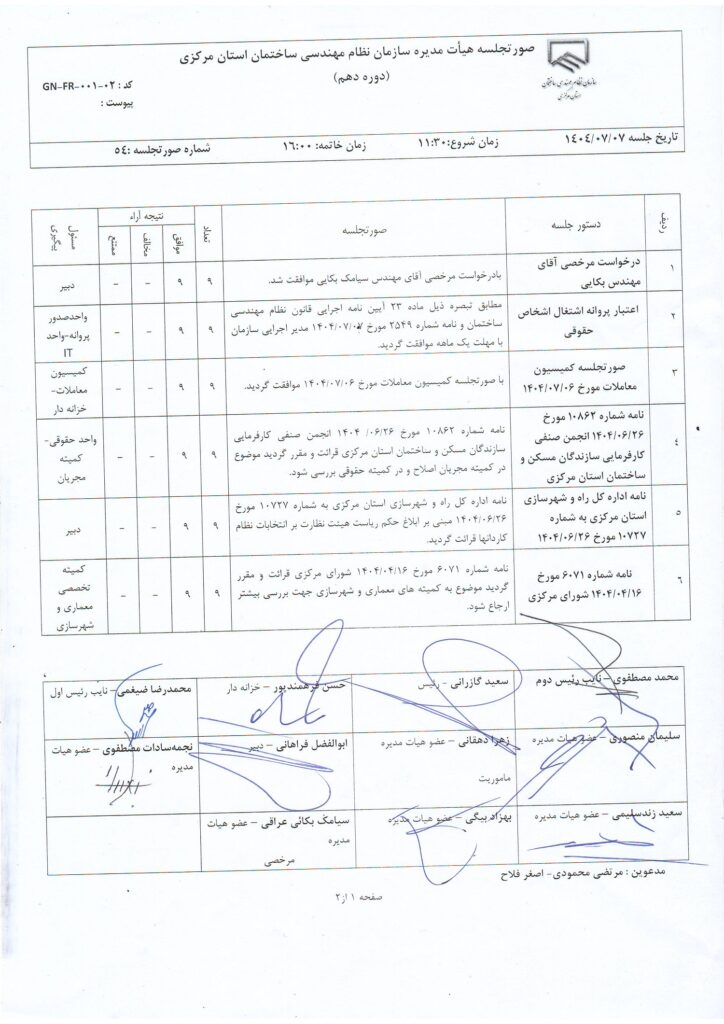 صورتجلسه هیأت مدیره سازمان نظام مهندسی ساختمان استان مرکزی
(دوره دهم)
سازمان نظام مهندسی ساختمان
استان مرکزی
کد : GN-FR-001-02
پیوست :
تاریخ جلسه ۱۴۰۴/۰۷/۰۷ زمان شروع:۱۱:۳۰ زمان خاتمه: ۱۶:۰۰ شماره صورتجلسه :۵۴
ردیف دستور جلسه صورتجلسه تعداد نتیجه آراء مسئول پیگیری
موافق مخالف ممتنع
۱
درخواست مرخصی آقای
مهندس بکایی
بادرخواست مرخصی آقای مهندس سیامک بکایی موافقت شد.
۹ ۹ – –
دبیر
۲
اعتبار پروانه اشتغال اشخاص
حقوقی
مطابق تبصره ذیل ماده ۲۳ آیین نامه اجرایی قانون نظام مهندسی
ساختمان و نامه شماره ۲۵۴۹ مورخ ۱۴۰۴/۰۷/۰۷ مدیر اجرایی سازمان
با مهلت یک ماهه موافقت گردید.
۹ ۹ – –
واحدصدور
پروانه-واحد
IT
۳
صورتجلسه کمیسیون
معاملات مورخ ۱۴۰۴/۰۷/۰۶
با صورتجلسه کمیسیون معاملات مورخ ۱۴۰۴/۰۷/۰۶ موافقت گردید.
۹ ۹ – –
کمیسیون
معاملات-
خزانه دار
۴
نامه شماره ۱۰۸۶۲ مورخ
۱۴۰۴/۰۶/۲۶ انجمن صنفی
کارفرمایی سازندگان مسکن و
ساختمان استان مرکزی
نامه شماره ۱۰۸۶۲ مورخ ۰۶/۲۶/ ۱۴۰۴ انجمن صنفی کارفرمایی
سازندگان مسکن و ساختمان استان مرکزی قرائت و مقرر گردید موضوع
در کمیته مجریان اصلاح و در کمیته حقوقی بررسی شود.
۹ ۹ – –
واحد حقوقی-
کمیته
مجریان
۵
نامه اداره کل راه و شهرسازی
استان مرکزی به شماره
۱۰۷۲۷ مورخ ۱۴۰۴/۰۶/۲۶
نامه اداره کل راه و شهرسازی استان مرکزی به شماره ۱۰۷۲۷ مورخ
۱۴۰۴/۰۶/۲۶ مبنی بر ابلاغ حکم ریاست هیئت نظارت بر انتخابات نظام
کاردانها قرائت گردید.
۹ ۹ – –
دبیر
۶
نامه شماره ۶۰۷۱ مورخ
۱۴۰۴/۰۴/۱۶ شورای مرکزی
نامه شماره ۶۰۷۱ مورخ ۱۴۰۴/۰۴/۱۶ شورای مرکزی قرائت و مقرر
گردید موضوع به کمیته های معماری و شهرسازی جهت بررسی بیشتر
ارجاع شود.
۹ ۹ – –
کمیته
تخصصی
معماری و
شهرسازی
محمد مصطفوی – نایب رئیس دوم سعید گازرانی - رئیس حسن فرهمندپور – خزانه دار محمدرضا ضیغمی – نایب رئیس اول
سلیمان منصوری – عضو هیات مدیره زهرا دهقانی – عضو هیات مدیره ابوالفضل فراهانی – دبیر نجمه‌سادات مصطفوی – عضو هیات
مدیره
ماموریت
سعید زندسلیمی – عضو هیات مدیره بهزاد بیگی – عضو هیات مدیره سیامک بکائی عراقی – عضو هیات
مدیره
مرخصی
مدعوین : مرتضی محمودی- اصغر فلاح
صفحه ۱ از۲